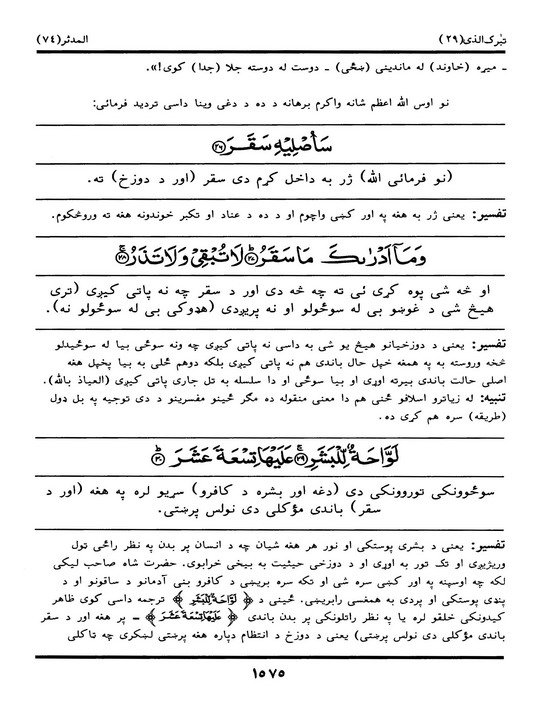 تبٰرک الذی (۲۹) المدثر (۷۴)
ـ میړه (خاوند) له ماندینې (ښځې) ـ دوست له دوسته جلا (جدا) کوی!».
نو اوس الله اعظم شانه واکرم برهانه د ده د دغې وینا داسې تردید فرمائی:
سَاُصْلِیْهِ سَقَرَ ﴿۲۶﴾
(نو فرمائی الله) ژر به داخل کړم دی سقر (اور د دوزخ) ته.
تفسیر: یعنی ژر به هغه په اور کښې واچوم او د ده د عناد او تکبر خوندونه هغه ته وروڅکوم.
وَمَاۤ اَدْرٰىكَ مَا سَقَرُ ﴿۲۷﴾ لَا تُبْقِیْ وَلَا تَذَرُ ﴿۲۸﴾
او څه شی پوه کړی ئې ته چه څه دی اور د سقر چه نه پاتې کیږی (ترې
هیڅ شی د غوښو بی له سوځولو او نه پریږدی (هډوکی بی له سوځولو نه).
تفسیر: یعنی د دوزخیانو هیڅ یو شی به داسې نه پاتې کیږی چه ونه سوځی بیا له سوځیدلو
څخه وروسته به په همغه خپل حال باندې هم نه پاتې کیږی بلکه دوهم ځلی به بیا پخپل هغه
اصلی حالت باندې بیرته اوړی او بیا سوځی او دا سلسله به تل جاری پاتې کیږی (العیاذ بالله).
تنبیه: له زیاترو اسلافو ځنې هم دا معنی منقوله ده مگر ځینو مفسرینو د دې توجیه په بل ډول
(طریقه) سره هم کړې ده.
لَوَّاحَةٌ لِّلْبَشَرِ ﴿۲۹﴾ عَلَیْهَا تِسْعَةَ عَشَرَ ﴿۳۰﴾
سوځوونکی توروونکی دی (دغه اور بشره د کافرو) سړیو لره په هغه (اور د
سقر) باندې مؤکلی دی نولس پرښتې.
تفسیر: یعنی د بشرې پوستکی او نور هر هغه شیان چه د انسان پر بدن په نظر راځی تول
وریژیږی او تک تور به اوړی او د دوزخی حیثیت به بیخی خرابوی. حضرت شاه صاحب لیکی
لکه چه اوسپنه په اور کښې سره شی او تکه سره بریښی د کافرو بنی آدمانو د ساقونو او د
پنډی پوستکی او پردې به همغسې رابریښی. ځینې د ﴿لَوَّاحَةٌ لِّلْبَشَرِ﴾ ترجمه داسې کوی ظاهر
کیدونکی خلقو لره یا په نظر راتلونکی پر بدن باندې ﴿عَلَیْهَا تِسْعَةَ عَشَرَ﴾ ـ پر هغه اور د سقر
باندې مؤکلی دی نولس پرښتې) یعنی د دوزخ د انتظام دپاره هغه پرښتې لښکرې چه ټاکلی
۱۵۷۵